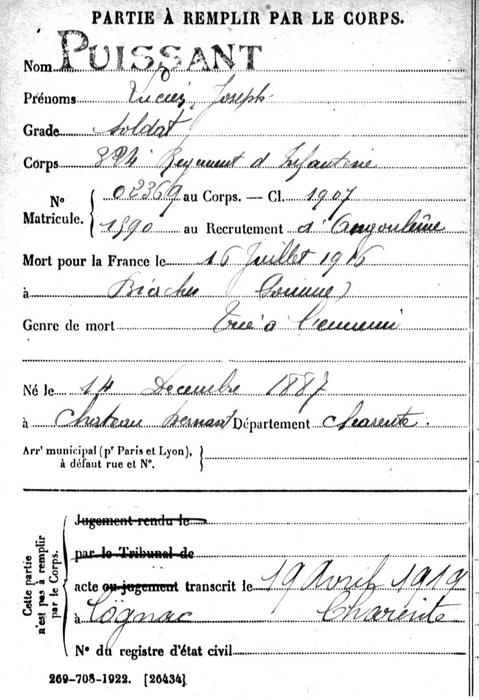 PARTIE À REMPLIR PAR LE CORPS.
Nom PUISSANT
Prénoms Lucien Joseph
Grade Soldat
Corps 324 Regiment d'Infanterie
N° Matricule. 02369 au Corps. — Cl. 1907
1590 au Recrutement d'Angoulême
Mort pour la France le 16 Juillet 1916
à Biaches (Somme)
Genre de mort Tué à l'ennemi
Né le 14 Decembre 1887
à Chateau Bernard Département Charente.
Arrt municipal (pr Paris et Lyon), à défaut rue et N°.
Cette partie n'est pas à remplir par le Corps.
Jugement rendu le
par le Tribunal de
acte ou jugement transcrit le 19 Avril 1919
à Cognac Charente
N° du registre d'état civil
269-708-1922. [26434]